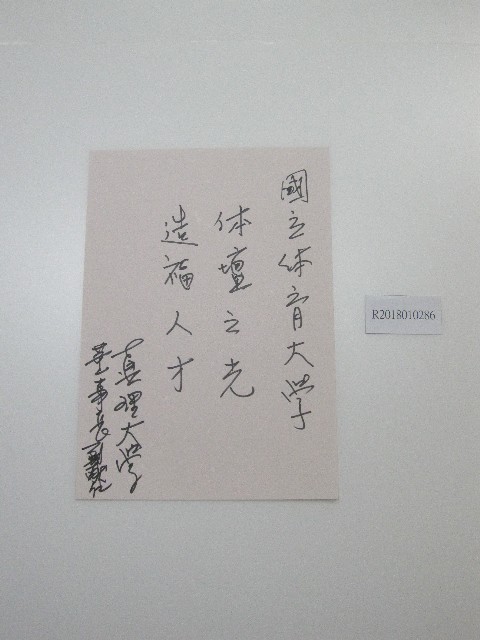 國立体育大学
体壇之光
造福人才
真理大学
董事長
R2018010286